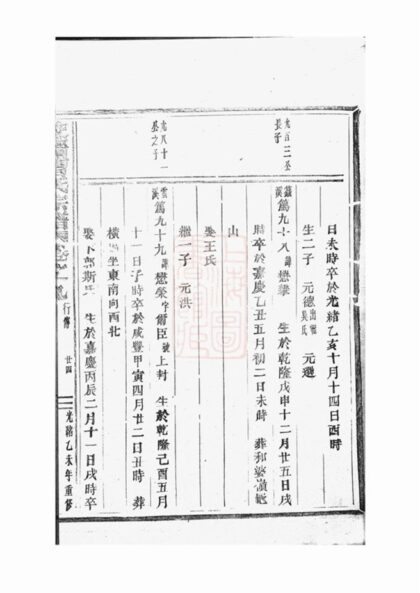 日未時卒於光緒乙亥十月十四日酉時
生二子 元德出繼吳氏 元選
允百三公長子
篤九十八諱懋攀 生於乾隆戊申十二月廿五日戌
時卒於嘉慶乙丑五月初二日未時 葬和婆嶺
山
娶王氏
繼一子 元洪
允八十一公之子
篤九十九諱懋榮字爾臣號上封 生於乾隆己酉五月
十一日子時卒於咸豐甲寅四月廿二日丑時 葬
坐東南向西北
娶下郭斯氏 生於嘉慶丙辰二月十一日戌時卒
行傳 廿四 光緒乙未年重修